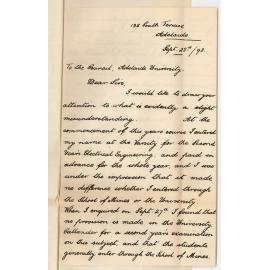 135 South Terrace
Adelaide
Sept. 28th/98.
To the Council, Adelaide University.
Dear Sirs,
I would like to draw your
attention to what is evidently a slight
misunderstanding. At the
commencement of this years course I entered
my name at the Varsity for the Second
Years Electrical Engineering, and paid in
advance for the whole year, and I was
under the impression that it made
no difference whether I entered through
the School of Mines or the University.
When I enquired on Sept. 27th I found that
no provision is made in the University
Callendar for a second years examination
on this subject, and that the students
generally enter through the School of Mines.